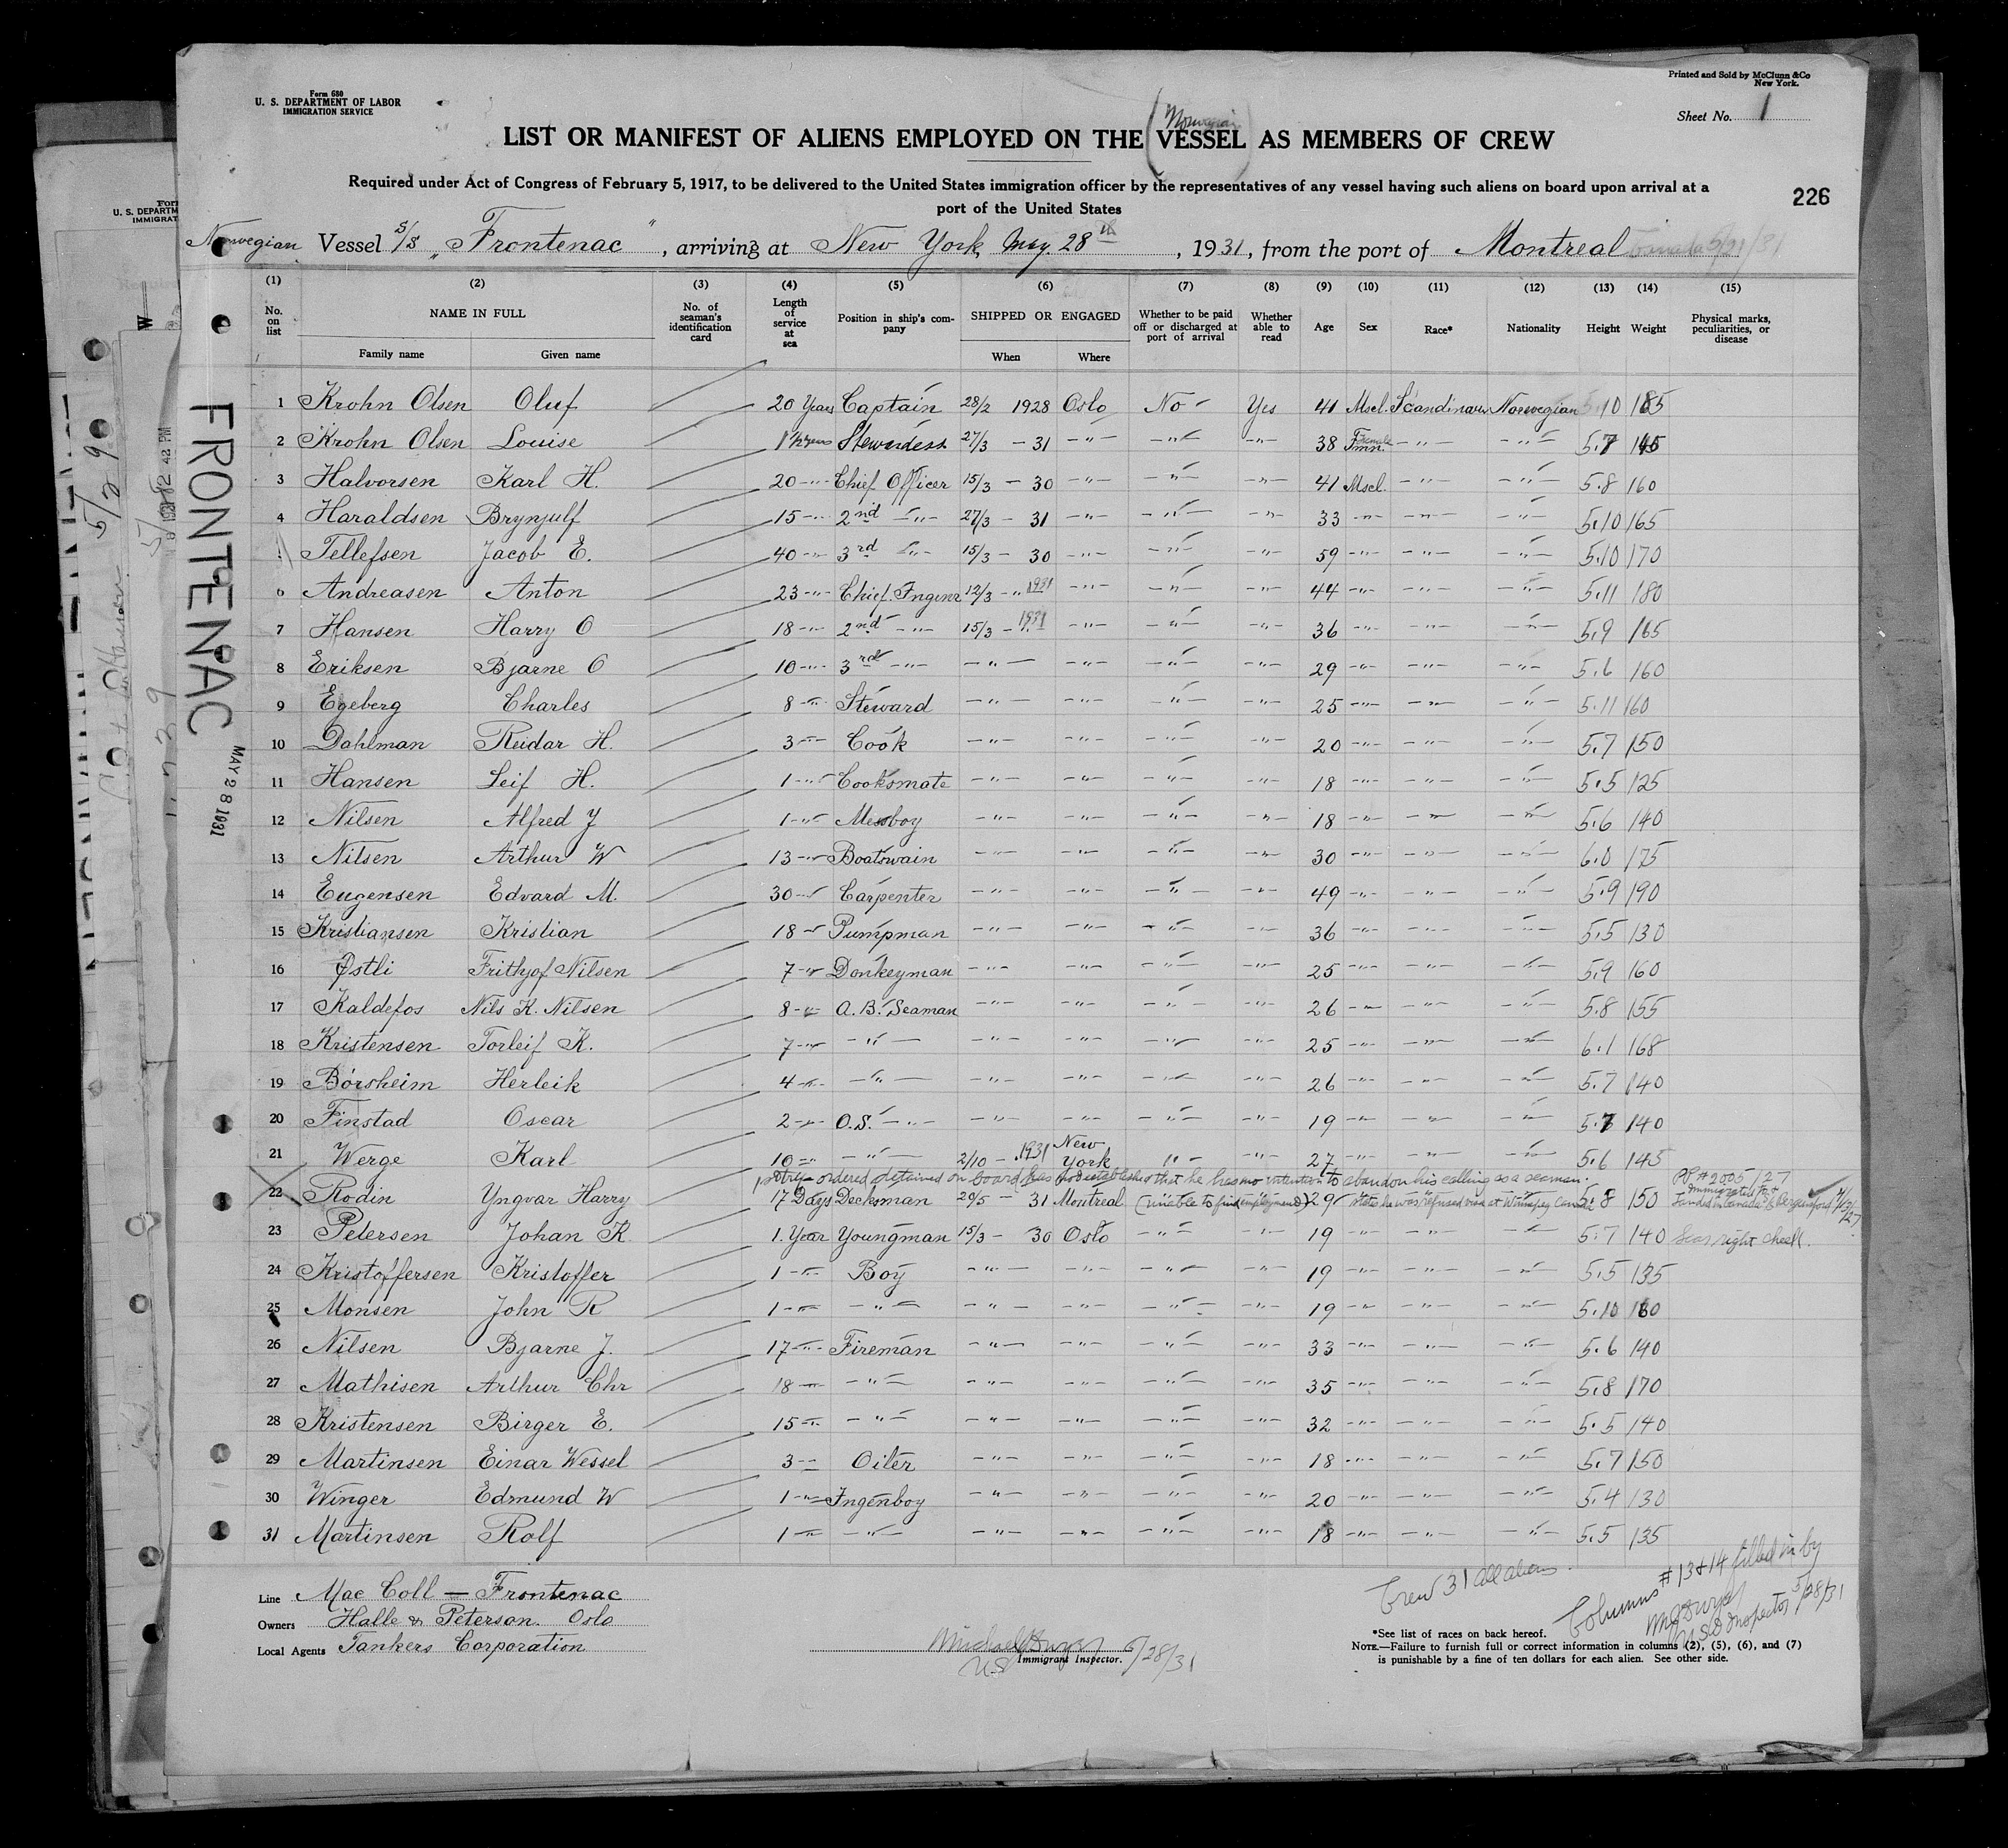 Form 680
U. S. DEPARTMENT OF LABOR
IMMIGRATION SERVICE
Printed and Sold by McClunn & Co
New York.
Sheet No. 1
LIST OR MANIFEST OF ALIENS EMPLOYED ON THE (Norwegian) VESSEL AS MEMBERS OF CREW
Required under Act of Congress of February 5, 1917, to be delivered to the United States immigration officer by the representatives of any vessel having such aliens on board upon arrival at a
port of the United States
226
Norwegian Vessel S/S "Frontenac", arriving at New York, May. 28th, 1931, from the port of Montreal Canada 5/21/31
(1) (2) (3) (4) (5) (6) (7) (8) (9) (10) (11) (12) (13) (14) (15)
No. on list NAME IN FULL No. of seaman's identification card Length of service at sea Position in ship's company SHIPPED OR ENGAGED Whether to be paid off or discharged at port of arrival Whether able to read Age Sex Race* Nationality Height Weight Physical marks, peculiarities, or disease
Family name Given name When Where
1 Krohn Olsen Oluf 20 Years Captain 28/2 1928 Oslo No Yes 41 Mscl. Scandinavn Norwegian 5.10 165
2 Krohn Olsen Louise Stewardess 27/3 - 31 -"- -"- -"- 38 Female -"- -"- 5.7 145
3 Halvorsen Karl H. 20 -"- Chief Officer 15/3 - 30 -"- -"- -"- 41 Mscl. -"- -"- 5.8 160
4 Haraldsen Brynjulf 15 -"- 2nd -"- 27/3 - 31 -"- -"- -"- 33 -"- -"- -"- 5.10 165
Tellefsen Jacob E. 40 -"- 3rd -"- 15/3 - 30 -"- -"- -"- 59 -"- -"- -"- 5.10 170
6 Andreasen Anton 23 -"- Chief. Ingenr 12/3 -"- 1931 -"- -"- -"- 44 -"- -"- -"- 5.11 180
7 Hansen Harry O 18 -"- 2nd -"- 15/3 - 1931 -"- -"- -"- 36 -"- -"- -"- 5.9 165
8 Eriksen Bjarne O 10 -"- 3rd -"- -"- -"- -"- -"- 29 -"- -"- -"- 5.6 160
9 Egeberg Charles 8 -"- Steward -"- -"- -"- -"- 25 -"- -"- -"- 5.11 160
10 Dahlman Reidar H. 3 -"- Cook -"- -"- -"- -"- 20 -"- -"- -"- 5.7 150
11 Hansen Leif H. 1 -"- Cooksmate -"- -"- -"- -"- 18 -"- -"- -"- 5.5 125
12 Nilsen Alfred J 1 -"- Messboy -"- -"- -"- -"- 18 -"- -"- -"- 5.6 140
13 Nilsen Arthur W 13 -"- Boatswain -"- -"- -"- -"- 30 -"- -"- -"- 6.0 175
14 Eugensen Edvard M. 30 -"- Carpenter -"- -"- -"- -"- 49 -"- -"- -"- 5.9 190
15 Kristiansen Kristian 18 -"- Pumpman -"- -"- -"- -"- 36 -"- -"- -"- 5.5 130
16 Østli Frithjof Nilsen 7 -"- Donkeyman -"- -"- -"- -"- 25 -"- -"- -"- 5.9 160
17 Kaldefos Nils K. Nilsen 8 -"- A.B. Seaman -"- -"- -"- -"- 26 -"- -"- -"- 5.8 155
18 Kristensen Torleif K. 7 -"- -"- -"- -"- -"- -"- 25 -"- -"- -"- 6.1 168
19 Börsheim Herleik 4 -"- -"- -"- -"- -"- -"- 26 -"- -"- -"- 5.7 140
20 Finstad Oscar 2 -"- O.S. -"- -"- -"- -"- -"- 19 -"- -"- -"- 5.7 140
21 Werge Karl 10 -"- -"- 2/10 - 1931 New York "- -"- 27 -"- -"- -"- 5.6 145
ordered detained on board (has not established that he has no intention to abandon his calling as a seaman. PP #2005/27
22 Rodin Yngvar Harry 17 Days Decksman 20/5 - 31 Montreal (Unable to find employment) 29 States he was refused visa at Winnipeg Canada 5.8 150
23 Petersen Johan K. 1. Year Youngman 15/3 - 30 Oslo -"- -"- 19 -"- -"- -"- 5.7 140 Scar right cheek.
24 Kristoffersen Kristoffer 1 -"- Boy -"- -"- -"- -"- 19 -"- -"- -"- 5.5 135
25 Monsen John R 1 -"- -"- -"- -"- -"- -"- 19 -"- -"- -"- 5.10 160
26 Nilsen Bjarne J. 17 -"- Fireman -"- -"- -"- -"- 33 -"- -"- -"- 5.6 140
27 Mathisen Arthur Chr 18 -"- -"- -"- -"- -"- -"- 35 -"- -"- -"- 5.8 170
28 Kristensen Birger E. 15 -"- -"- -"- -"- -"- -"- 32 -"- -"- -"- 5.5 140
29 Martinsen Einar Wessel 3 -"- Oiler -"- -"- -"- -"- 18 -"- -"- -"- 5.7 150
30 Winger Edmund W 1 -"- Ingenboy -"- -"- -"- -"- 20 -"- -"- -"- 5.4 130
31 Martinsen Rolf 1 -"- -"- -"- -"- -"- -"- 18 -"- -"- -"- 5.5 135
FRONTENAC
MAY 28 1931
Crew 31 all aliens.
Columns #13 & 14 filled in by
US Inspector 5/28/31
Line Mac Coll - Frontenac
Owners Halle & Peterson. Oslo
Local Agents Tankers Corporation
Michael
US Immigrant Inspector. 5/28/31
*See list of races on back hereof.
NOTE.—Failure to furnish full or correct information in columns (2), (5), (6), and (7)
is punishable by a fine of ten dollars for each alien. See other side.